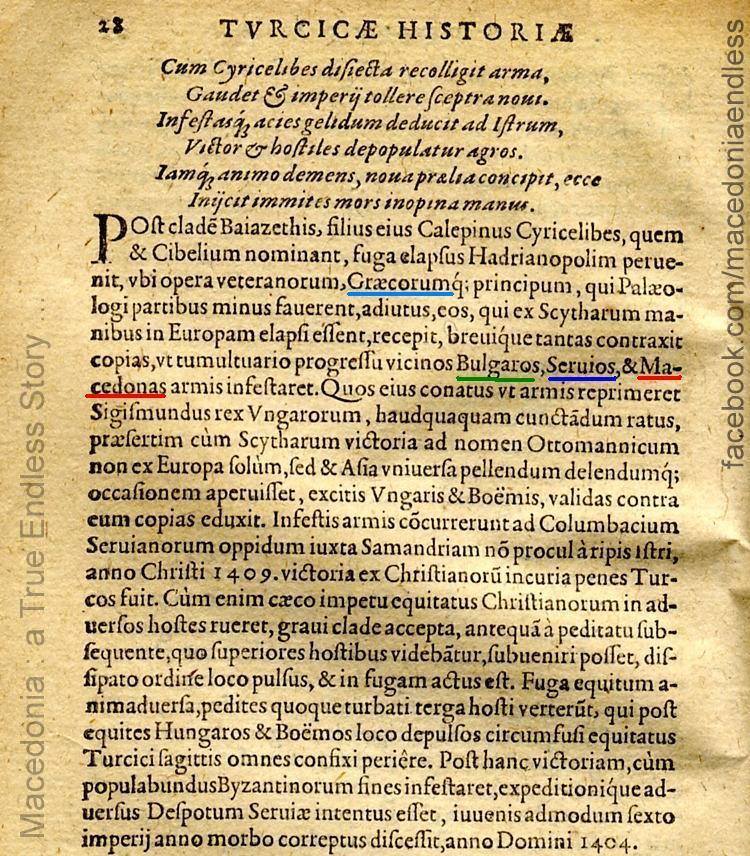 28 TVRCICÆ HISTORIÆ
Cum Cyricelibes disiecta recolligit arma,
Gaudet & imperij tollere sceptra noui.
Infestasq́ꝫ acies gelidum deducit ad Istrum,
Victor & hostiles depopulatur agros.
Iamq́ꝫ animo demens, noua prælia concipit, ecce
Inijcit immites mors inopina manus.
POst cladē Baiazethis, filius eius Calepinus Cyricelibes, quem
& Cibelium nominant, fuga elapsus Hadrianopolim perue-
nit, vbi opera veteranorum, Græcorumq́; principum, qui Palæo-
logi partibus minus fauerent, adiutus, eos, qui ex Scytharum ma-
nibus in Europam elapsi essent, recepit, breuique tantas contraxit
copias, vt tumultuario progressu vicinos Bulgaros, Seruios, & Ma-
cedonas armis infestaret. Quos eius conatus vt armis reprimeret
Sigismundus rex Vngarorum, haudquaquam cunctādum ratus,
præsertim cùm Scytharum victoria ad nomen Ottomannicum
non ex Europa solùm, sed & Asia vniuersa pellendum delendumq́;
occasionem aperuisset, excitis Vngaris & Boëmis, validas contra
eum copias eduxit. Infestis armis cōcurrerunt ad Columbacium
Seruianorum oppidum iuxta Samandriam nō procul à ripis Istri,
anno Christi 1409. victoria ex Christianorū incuria penes Tur-
cos fuit. Cùm enim cæco impetu equitatus Christianorum in ad-
uersos hostes rueret, graui clade accepta, antequā à peditatu sub-
sequente, quo superiores hostibus videbātur, subueniri posset, dis-
sipato ordine loco pulsus, & in fugam actus est. Fuga equitum a-
nimaduersa, pedites quoque turbati terga hosti verterūt, qui post
equites Hungaros & Boëmos loco depulsos circumfusi equitatus
Turcici sagittis omnes confixi periêre. Post hanc victoriam, cùm
populabundus Byzantinorum fines infestaret, expeditionique ad-
uersus Despotum Seruiæ intentus esset, iuuenis admodum sexto
imperij anno morbo correptus discessit, anno Domini 1404.
Macedonia : a True Endless Story ...
facebook.com/macedoniaendless